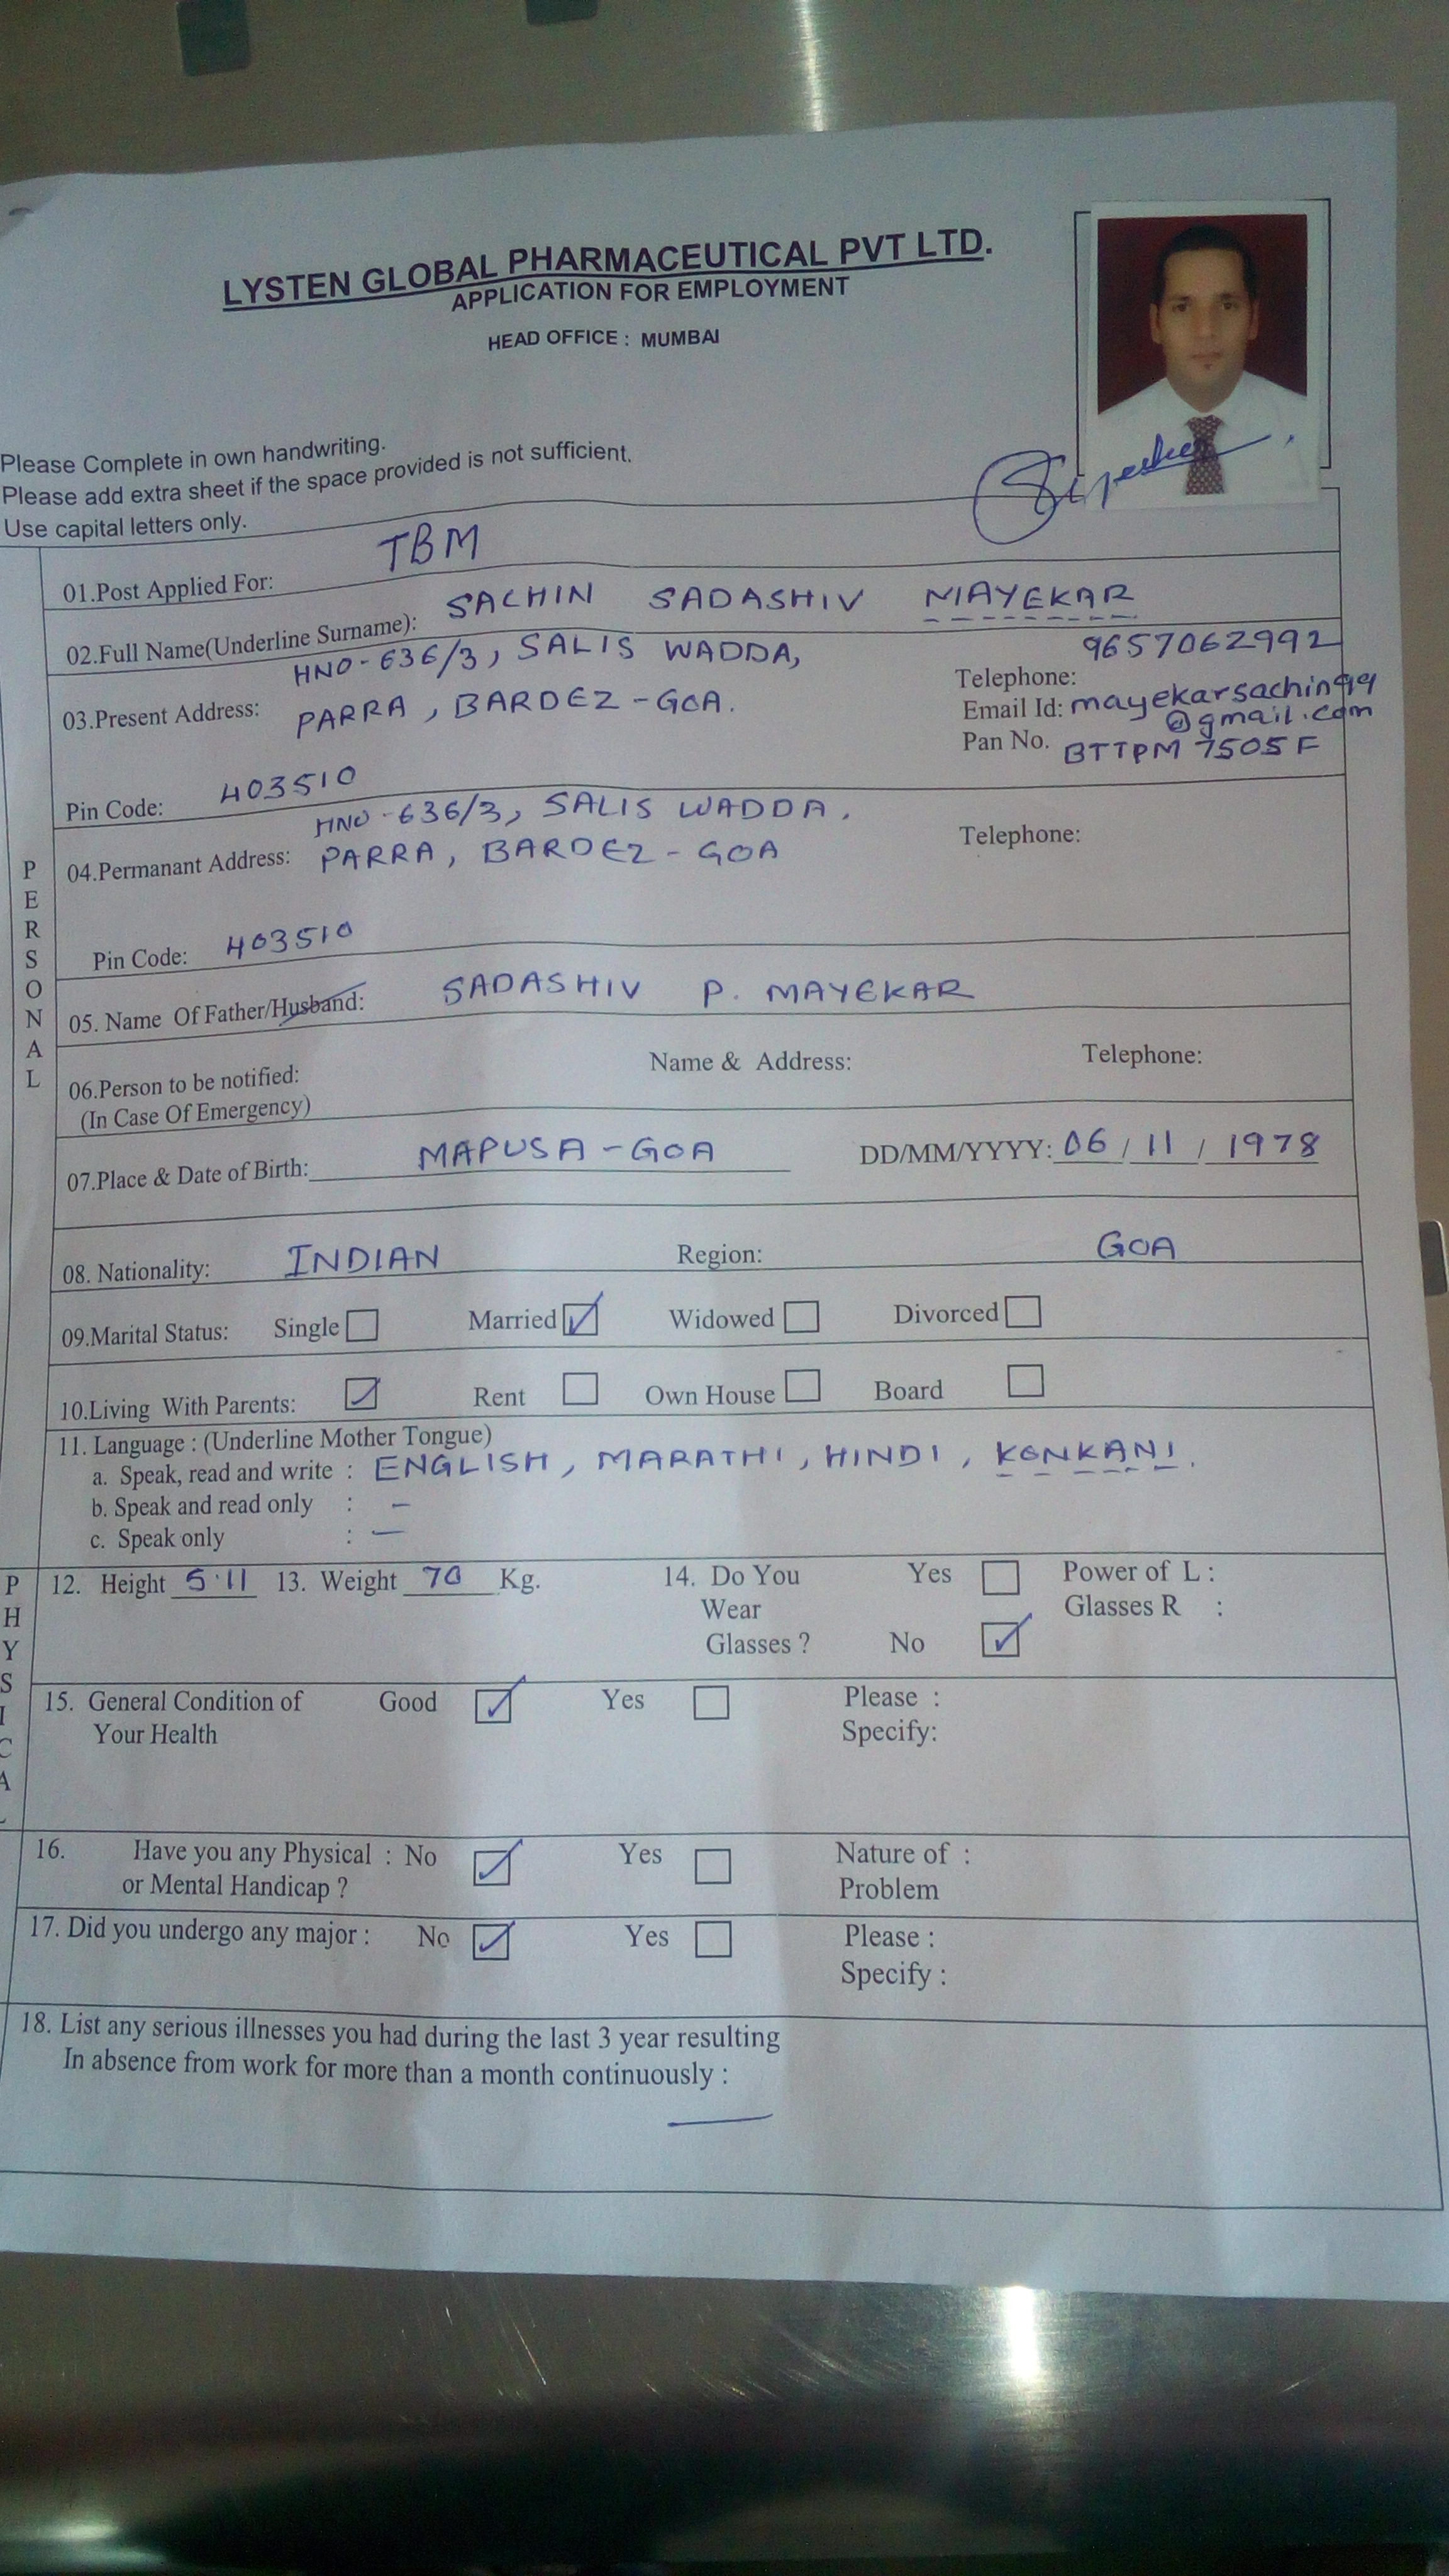 LYSTEN GLOBAL PHARMACEUTICAL PVT LTD.
APPLICATION FOR EMPLOYMENT
HEAD OFFICE : MUMBAI
Please Complete in own handwriting.
Please add extra sheet if the space provided is not sufficient.
Use capital letters only.
PERSONAL
01.Post Applied For: TBM
02.Full Name(Underline Surname): SACHIN SADASHIV MAYEKAR
03.Present Address: HNO-636/3, SALIS WADDA,
PARRA, BARDEZ-GOA.
Telephone: 9657062992
Email Id: mayekarsachin
@gmail.com
Pan No. BTTPM 7505 F
Pin Code: 403510
04.Permanant Address: HNO-636/3, SALIS WADDA,
PARRA, BARDEZ-GOA
Telephone:
Pin Code: 403510
05. Name Of Father/Husband: SADASHIV P. MAYEKAR
06.Person to be notified: Name & Address: Telephone:
(In Case Of Emergency)
07.Place & Date of Birth: MAPUSA-GOA DD/MM/YYYY: 06 / 11 / 1978
08. Nationality: INDIAN Region: GOA
09.Marital Status: Single Married Widowed Divorced
10.Living With Parents: Rent Own House Board
11. Language : (Underline Mother Tongue)
a. Speak, read and write : ENGLISH, MARATHI, HINDI, KONKANI.
b. Speak and read only : -
c. Speak only : -
PHYSICAL
12. Height 5'11 13. Weight 70 Kg. 14. Do You Yes Power of L :
Wear Glasses R :
Glasses ? No
15. General Condition of Good Yes Please :
Your Health Specify:
16. Have you any Physical : No Yes Nature of :
or Mental Handicap ? Problem
17. Did you undergo any major : No Yes Please :
Specify :
18. List any serious illnesses you had during the last 3 year resulting
In absence from work for more than a month continuously :